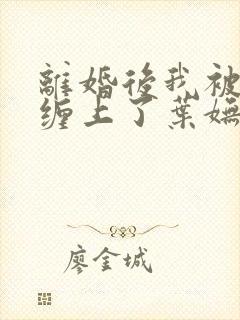 離婚後我被
缠上了葉嫵
廖金城